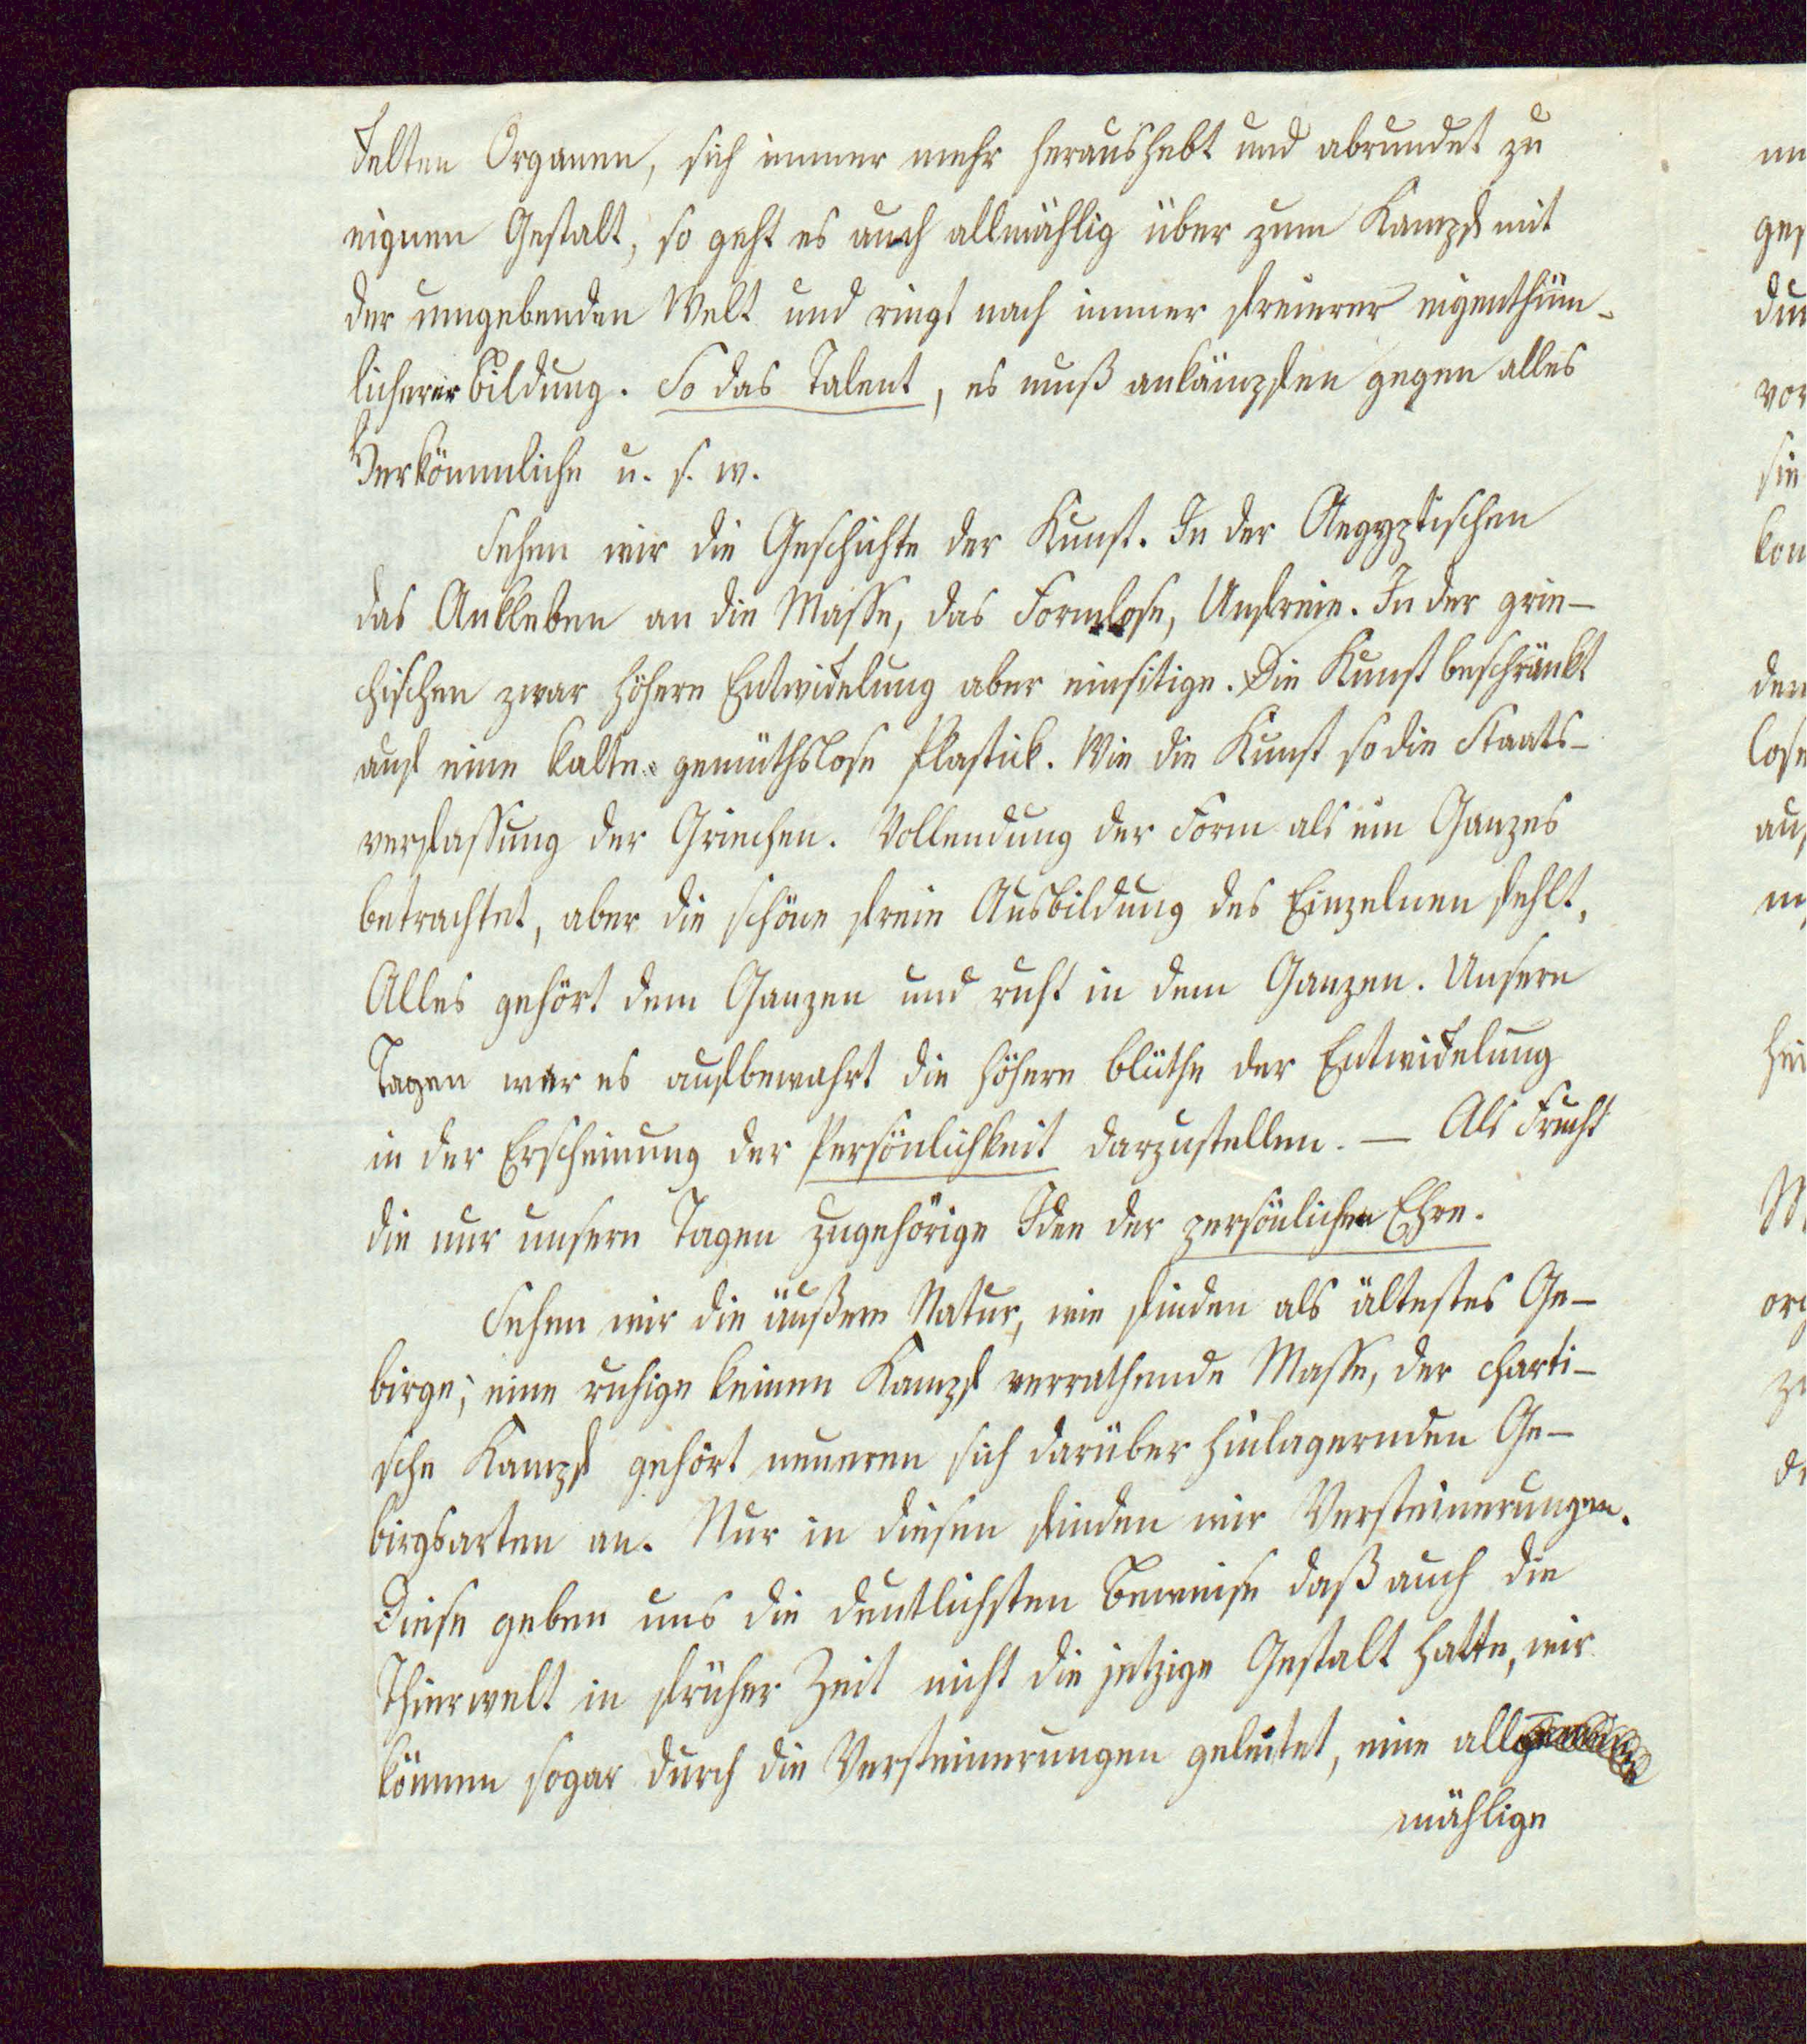 kelten Organen, sich immer mehr heraushebt und abrundet zu
eignen Gestalt, so geht es auch allmählig über zum Kampf mit
der umgebenden Welt und ringt nach immer freierer eigenthüm-
licherer Bildung. So das Talent, es muß ankämpfen gegen alles
Herkömmliche u. s. w.
Sehen wir die Geschichte der Kunst. In der Aegyptischen
das Ankleben an die Masse, das Formlose, Unfreie. In der grie-
chischen zwar höhere Entwickelung aber einsitige. Die Kunst beschränkt
auf eine kalte gemüthslose Plastick. Wie die Kunst so die Staats-
verfassung der Griechen. Vollendung der Form als ein Ganzes
betrachtet, aber die schöne freie Ausbildung des Einzelnen fehlt,
Alles gehört dem Ganzen und ruht in dem Ganzen. Unsern
Tagen war es aufbewahrt die höhere Blüthe der Entwickelung
in der Erscheinung der Persönlichkeit darzustellen. — Als Frucht
die nur unsern Tagen zugehörige Idee der persönlichen Ehre.
Sehen wir die äußere Natur, wie finden als ältestes Ge-
birge; eine ruhige keinen Kampf verrathende Masse, der
sche Kampf gehört neueren sich darüber hinlagernden Ge-
birgsarten an. Nur in diesen finden wir Versteinerungen.
Diese geben uns die deutlichsten Beweise daß auch die
Thierwelt in früher Zeit nicht die jetzige Gestalt hatte, wir
können sogar durch die Versteinerungen geleitet, eine all
mählige